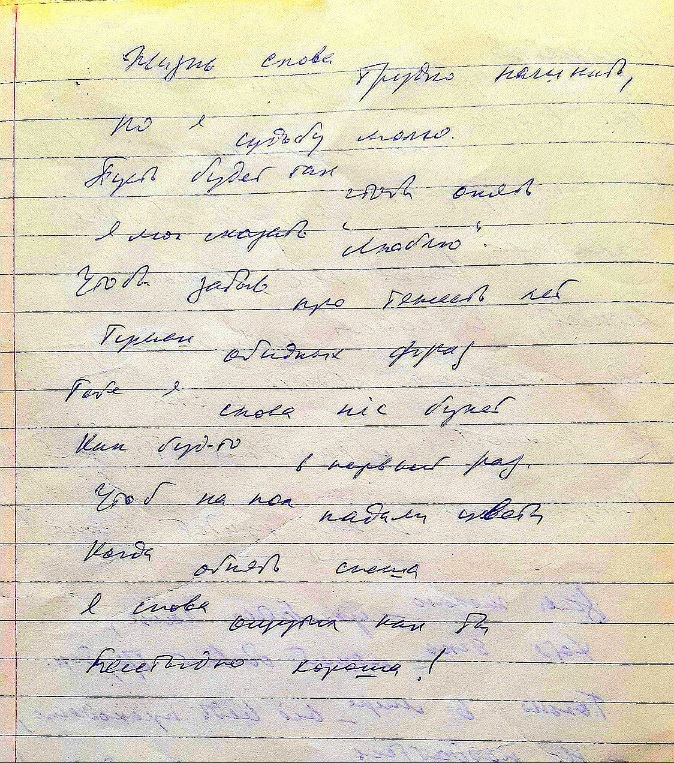 Жизнь снова трудно начинать,
Но я судьбу молю.
Пусть будет так чтоб опять
Я мог сказать "Люблю".
Чтобы забыв про тяжесть лет
Туман обидных фраз
Тебе я снова нёс букет
Как буд-то в первый раз.
Чтоб на пол падали цветы
Когда обнять спеша
Я снова ощутил как ты
Бесстыдно хороша!